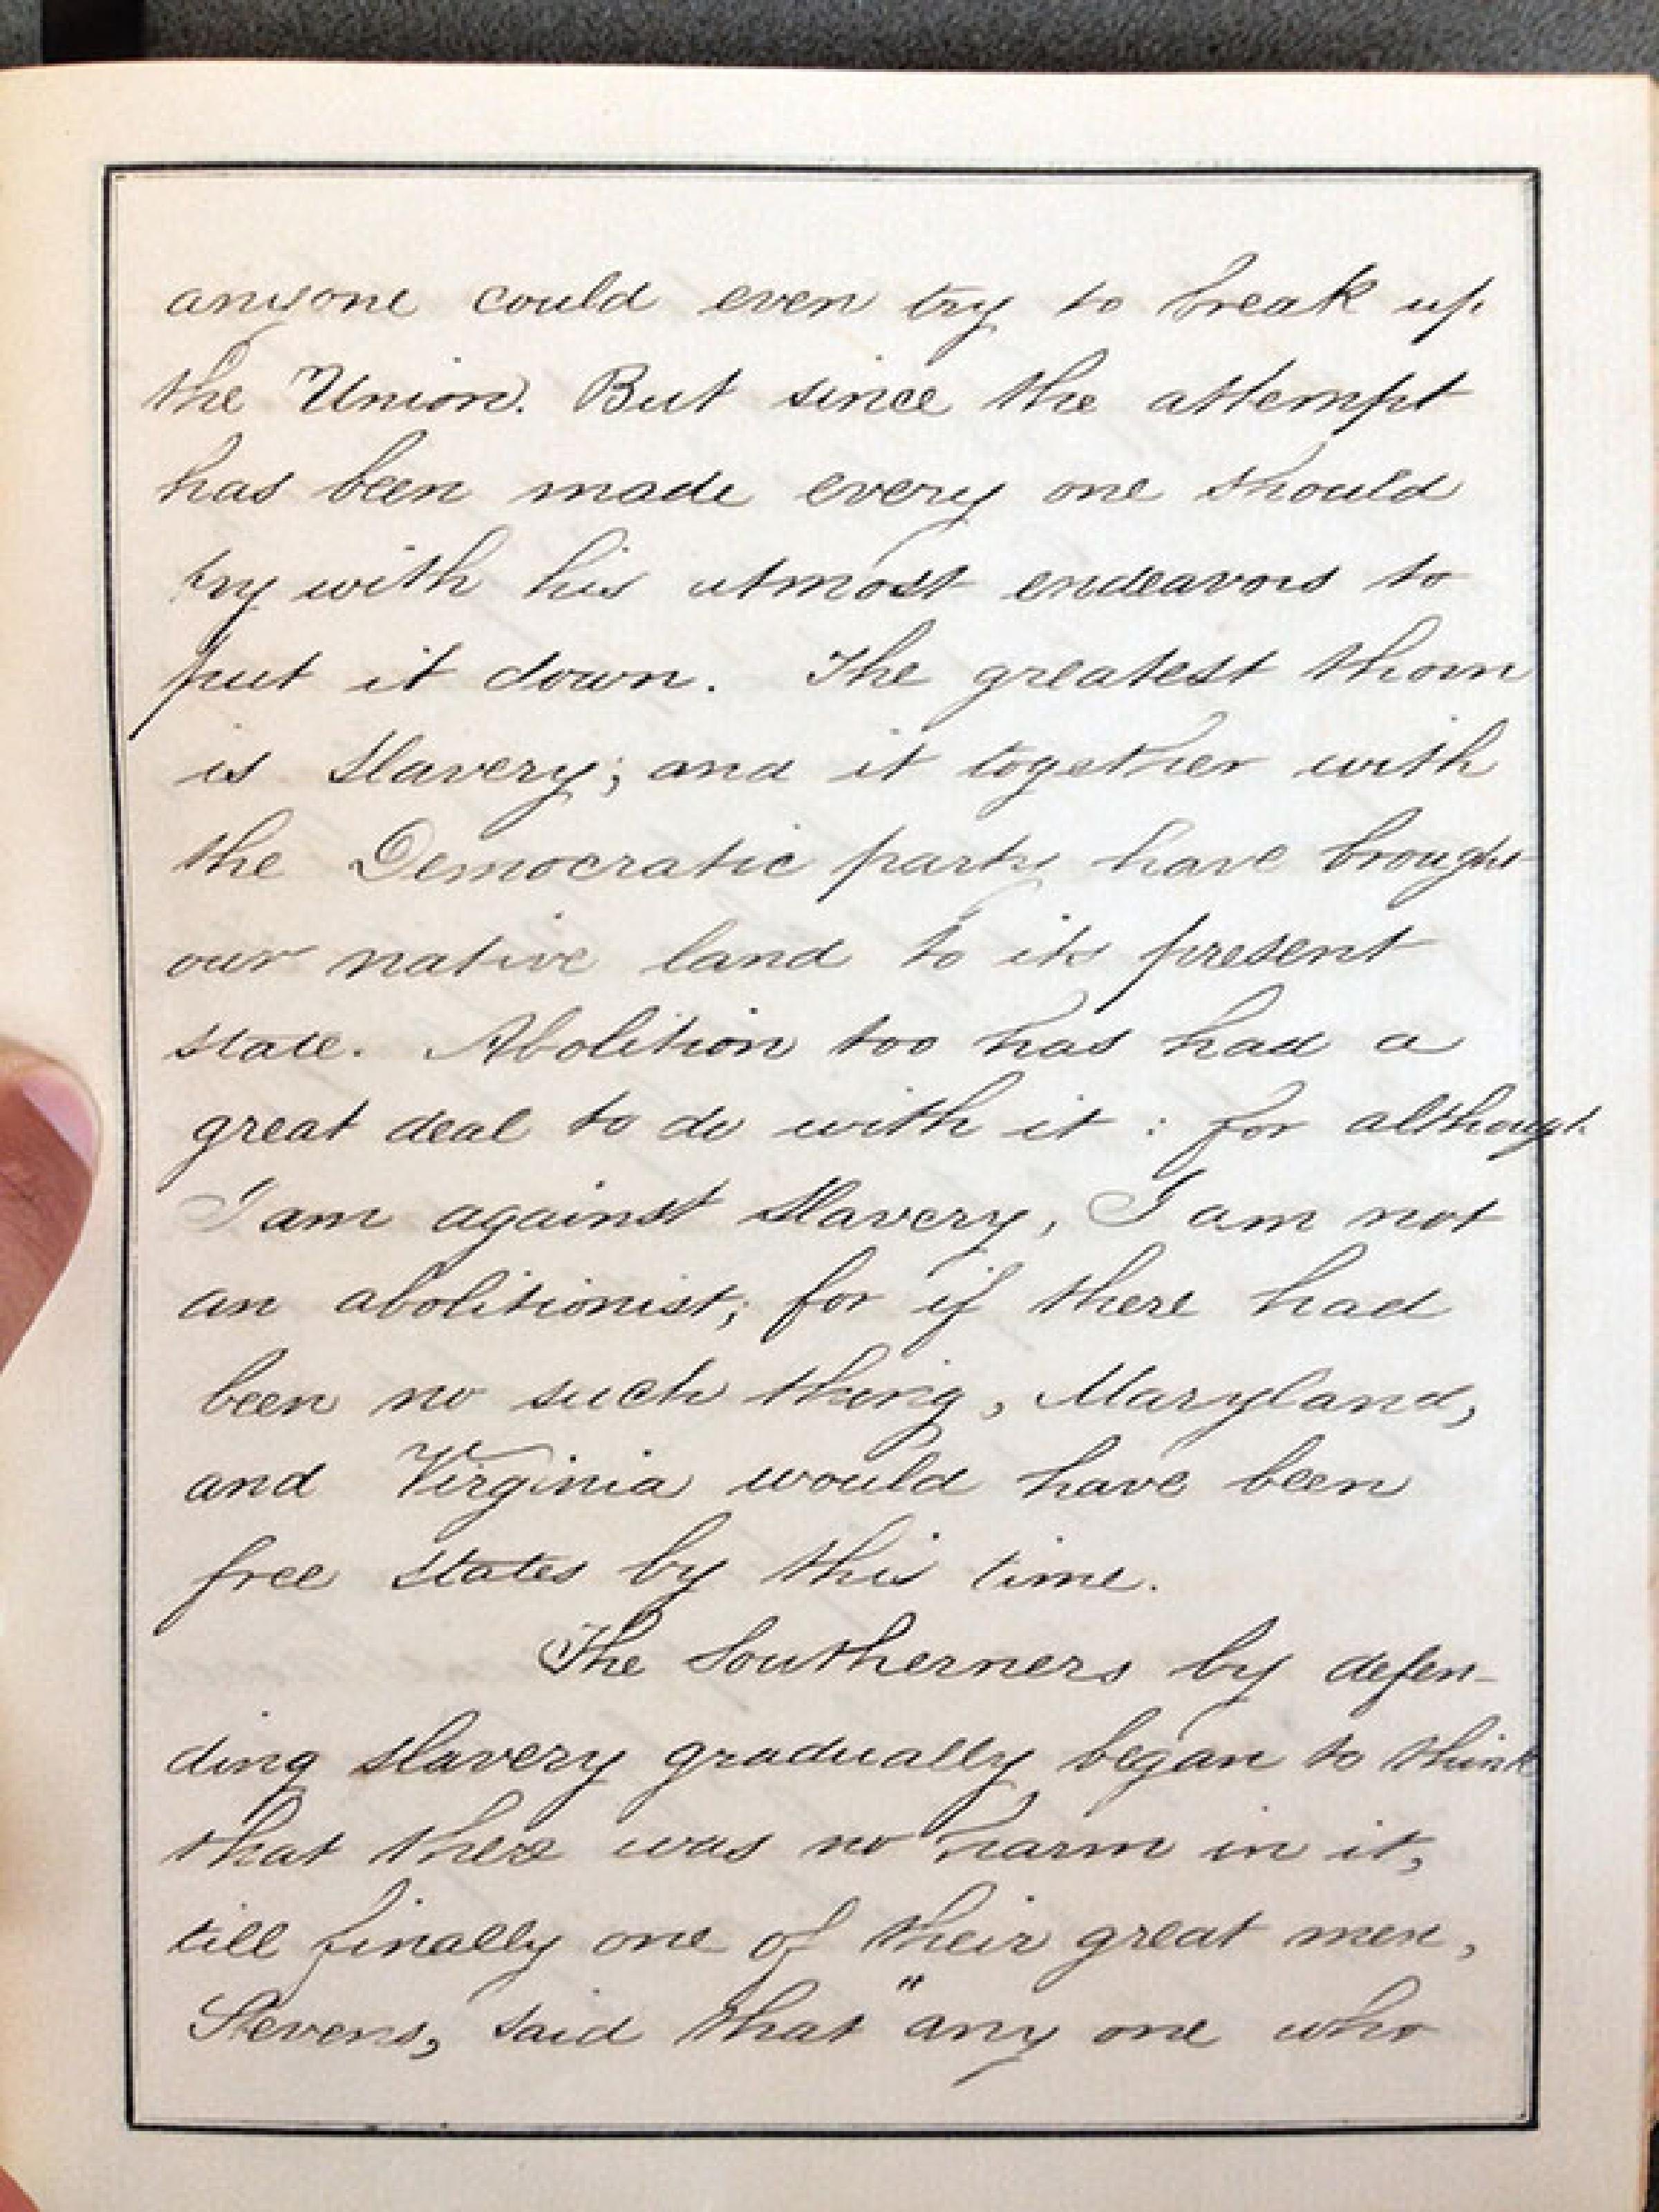 anyone could even try to break up
the Union. But since the attempt
has been made every one should
try with his utmost endeavors to
put it down. The greatest thorn
is Slavery; and it together with
the Democratic party have brought
our native land to its present
state. Abolition too has had a
great deal to do with it : for although
I am against Slavery, I am not
an abolitionist; for if there had
been no such thing, Maryland,
and Virginia would have been
free states by this time.
The Southerners by defen-
ding slavery gradually began to think
that there was no harm in it,
till finally one of their great men,
Stevens, said that "any one who